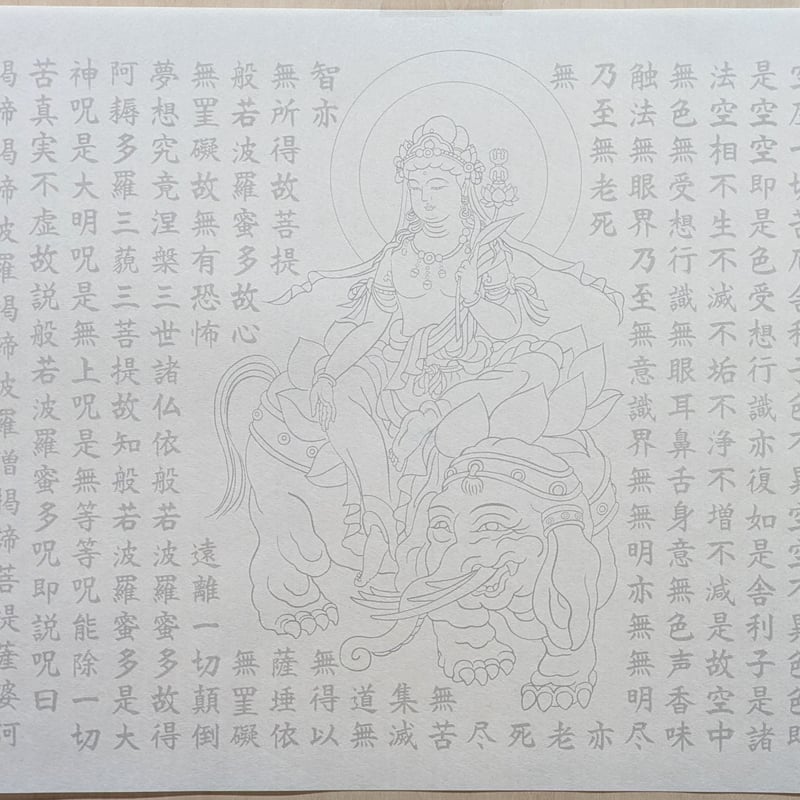 空度一切苦厄舎利子色不異空空不異色色即
是空空即是色受想行識亦復如是舎利子是諸
法空相不生不滅不垢不浄不増不減是故空中
無色無受想行識無眼耳鼻舌身意無色声香味
触法無眼界乃至無意識界無無明亦無無明尽
乃至無老死亦
無老
死
尽
無苦
集滅
道無
智亦無得以
無所得故菩提薩埵依
般若波羅蜜多故心無罣礙
無罣礙故無有恐怖遠離一切顛倒
夢想究竟涅槃三世諸仏依般若波羅蜜多故得
阿耨多羅三藐三菩提故知般若波羅蜜多是大
神呪是大明呪是無上呪是無等等呪能除一切
苦真実不虚故説般若波羅蜜多呪即説呪曰
羯諦羯諦波羅羯諦波羅僧羯諦菩提薩婆訶